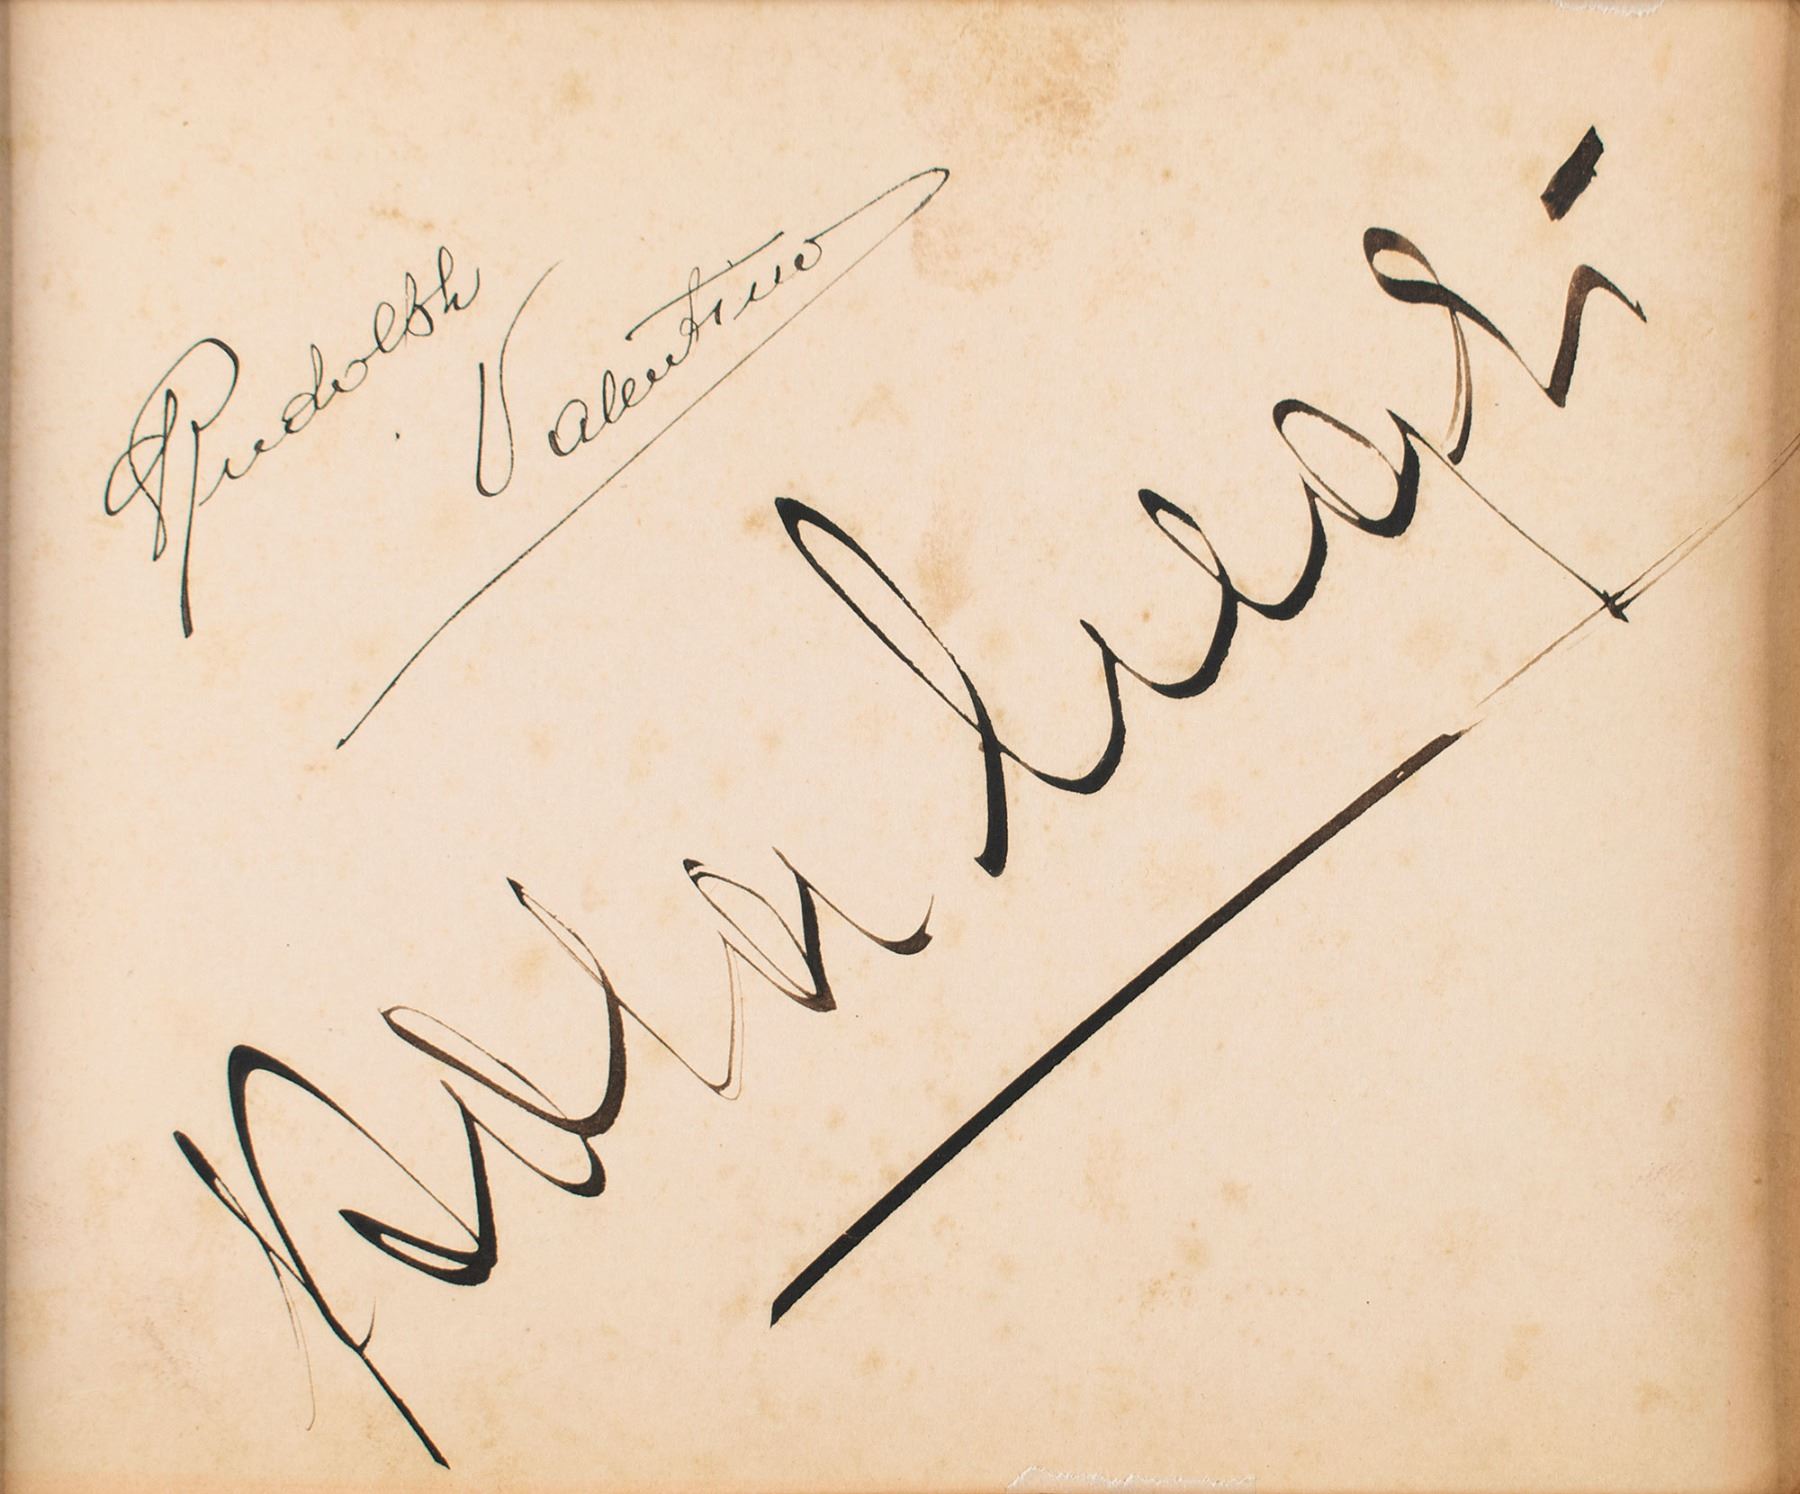 Rudolph
Valentino
Pola Negri